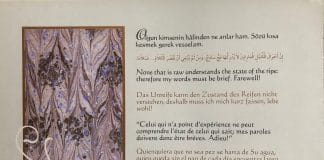 Olgun kimsenin hâlinden ne anlar ham. Sözü kısa
kesmek gerek vesselam.
None that is raw understands the state of the ripe:
therefore my words must be brief. Farewell!
Das Unreife kann den Zustand des Reifen nicht
verstehen, deshalb muss ich mich kurz fassen, lebe
wohl!
"Celui qui n'a point d'expérience ne peut
comprendre l'état de celui qui sait; mes paroles
doivent donc être brèves. Adieu!"
Quienquiera que no sea pez se harta de Su agua,